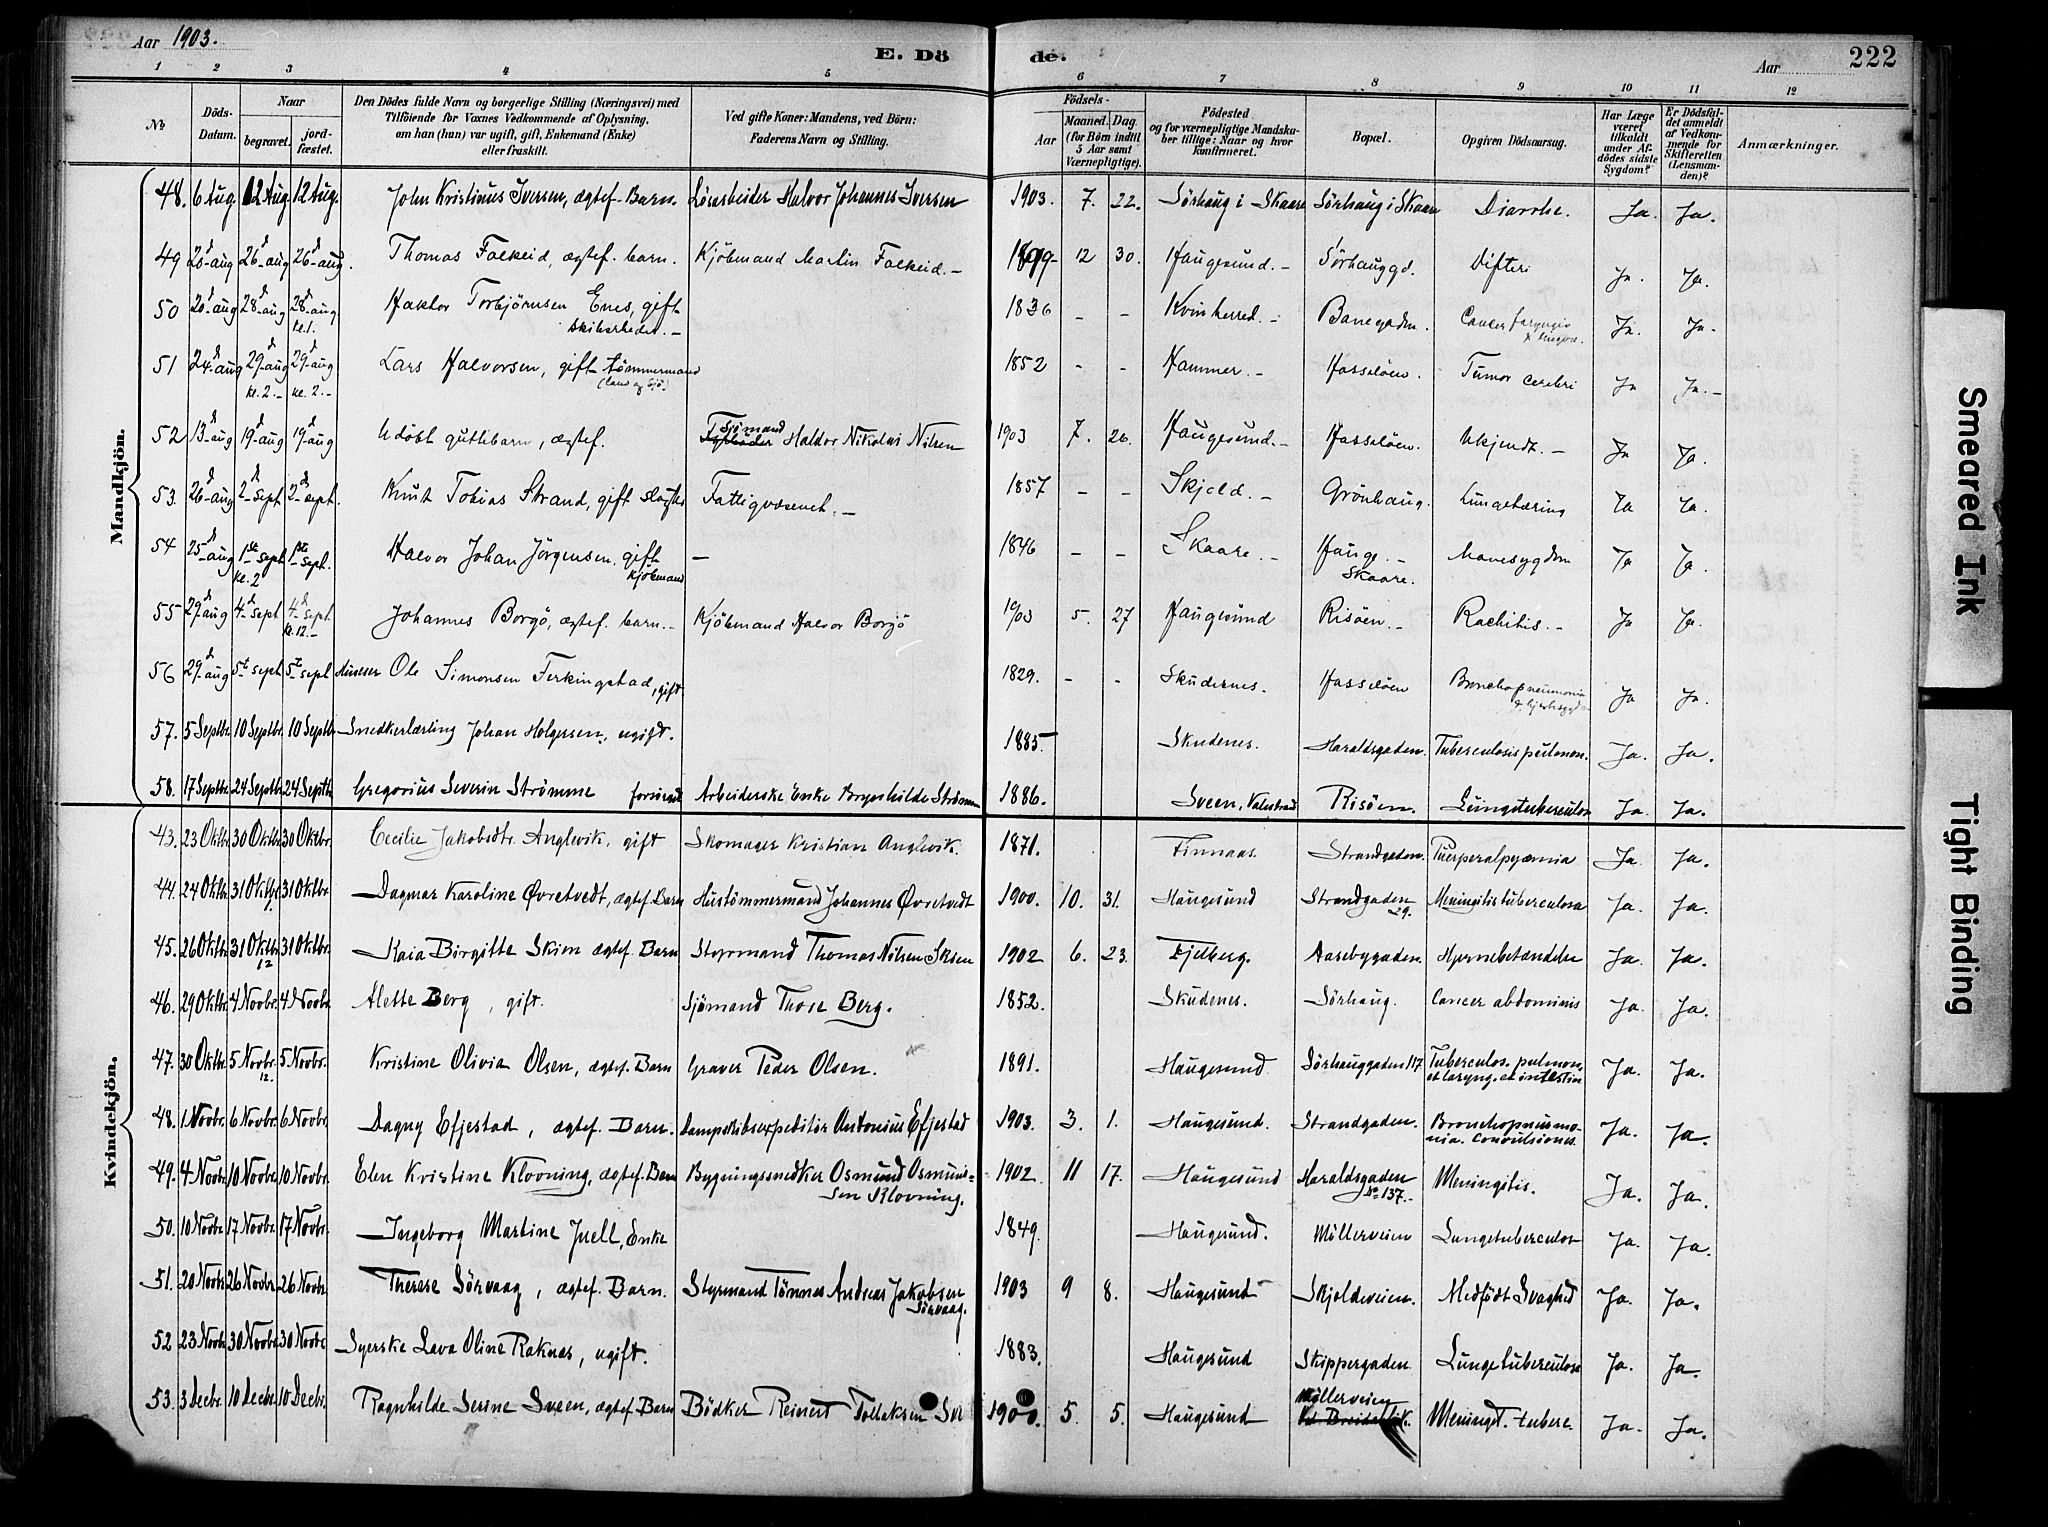 Aar 1903.
E. Dö
de.
Aar
222
1 2 3 4 5 6 7 8 9 10 11 12
№
Döds-Datum.
Naar
begravet.
jordfæstet.
Den Dödes fulde Navn og borgerlige Stilling (Næringsvei) med
Tilföiende for Voxnes Vedkommende af Oplysning,
om han (hun) var ugift, gift, Enkemand (Enke)
eller fraskilt.
Ved gifte Koner: Mandens, ved Börn:
Faderens Navn og Stilling.
Födsels-
Aar
Maaned. Dag.
(for Börn indtil
5 Aar samt
Værnepligtige).
Födested
og for værnepligtige Mandska-
ber tillige: Naar og hvor
konfirmeret.
Bopæl.
Opgiven Dödsaarsag.
Har Læge
været
tilkaldt
under Af-
dödes sidste
Sygdom?
Er Dödsfal-
det anmeldt
af Vedkom-
mende for
Skifteretten
(Lensman-
den)?
Anmærkninger.
Mandkjön.
48. 6 Aug. 12 Aug. 12 Aug. John Kristinus Iversen, ægtef. Barn. Lösarbeider Halvor Johannes Iversen 1903. 7. 22. Sörhaug i Skaare Sörhaug i Skaare Diarrhe. Ja. Ja.
49 aug 26d aug 26d aug. Thomas Falkeid, ægtef. barn. Kjöbmand Martin Falkeid. – 1899 – 12 30. Haugesund. – Sörhauggd. Difteri Ja. Ja.
50 20d aug 28d aug 28d aug kl. 1. Torbjörnsen Enes, gift 1836 – – Kvinherred. – Banegaden. Cancer laryngis Ja. Ja.
51 24d aug 29d aug kl. 2. – 29d aug kl. 2. – Lars Halvorsen, gift tömmermand (land og sjö) 1852 – – Hammer. – Hasselöen. Tumor cerebri Ja Ja. –
52 13d aug 19d aug 19d aug Udöbt guttebarn, ægtef. Sjömand Haldor Nikolai Nilsen 1903 7. 26. Haugesund. – Hasselöen. Ukjendt. – Ja Ja.
53. 26d aug 2d sept 2d sept. Knut Tobias Strand, gift Fattigvæsenet. – 1857 – – Skjold. – Grönhaug. Lungetæring Ja Ja.
54 25d aug 1ste sept kl. 2 1ste sept. Halvor Johan Jörgensen. gift kjöbmand – 1846 – – Skaare. – Hauge. – Skaare. Mavesygdom Ja Ja.
55 29d aug 4d sept 4d sept kl. 12. – Johannes Borgö, ægtef. barn. – Kjöbmand Halvor Borgö 1903 5. 27 Haugesund Risöen. – Rachitis. – Ja Ja.
56 29d aug 5t sept 5t sept Ole Simonsen Ferkingstad, gift 1829. – – Skudesnes. Hasselöen Bronchopneumonia Ja Ja.
57. 5 Septbr. 10 Septbr. 10 Septbr. Snedkerlærling Johan Holgersen, ugift. 1885 – Skudenes. Haraldsgaden. Tuberculosis pulmon. Ja. Ja.
58. 17 Septbr. 24 Septbr. 24 Septbr Gregorius Severin Strømme forsörget Arbeiderske Enke Brynhilde Strömme 1886. Sveen, Valestrand Risöen. Lungetuberculose Ja. Ja.
Kvindekjön.
43. 23 Oktbr. 30 Oktbr. 30 Oktbr. Cecilie Jakobsdtr. Anglevik, gift Skomager Kristian Anglevik. 1871. Finnaas. Strandgaden. Puerperalpyæmia Ja. Ja.
44. 24 Oktbr. 31 Oktbr. 31 Oktbr. Dagmar Karoline Øvretvedt, ægtef. Barn Hustömmermand Johannes Øvretvedt 1900. 10. 31. Haugesund Strandgaden 29. Meningitis tuberculosa Ja. Ja.
45. 26 Oktbr. 31 Oktbr. 12 31 Oktbr. Kaia Birgitte Skim ægtef. Barn Styrmand Thomas Nilsen 1902 6. 23. Fjelberg. Aasebygaden. Hjernebetændelse Ja. Ja.
46. 29 Oktbr. 4 Novbr. 4 Novbr. Alette Berg, gift. Sjömand Thore Berg. 1852. Skudenes. Sörhaug. Cancer abdominis Ja. Ja.
47. 30 Oktbr. 5 Novbr. 12. 5 Novbr. Kristine Olivia Olsen, ægtef. Barn Graver Peder Olsen. 1891. Haugesund Sörhauggaden 117 Tuberculos. pulmon. et laryng. et intestin Ja. Ja.
48. 1 Novbr. 6 Novbr. 6 Novbr. Dagny Efjestad, ægtef. Barn. Dampskibsexpeditör Antonius Efjestad 1903. 3. 1. Haugesund. Strandgaden. Bronchopneumo-
nia. Convulsiones. Ja. Ja.
49. 4 Novbr. 10 Novbr. 10 Novbr. Elen Kristine Klovning, ægtef. Barn Bygningssnedker Osmund Osmund-
sen Klovning. 1902. 11 17. Haugesund Haraldsgaden No 137. – Meningitis. Ja. Ja.
50. 10 Novbr. 17 Novbr. 17 Novbr. Ingeborg Martine Juell, Enke 1849. Haugesund. Möllerveien Lungetuberculose Ja. Ja.
51. 20 Novbr. 26 Novbr. 26 Novbr. Therese Sörvaag, ægtef. Barn. Styrmand Tönnes Andreas Jakobsen Sörvaag. 1903 9 8. Haugesund Skjoldeveien. Medfödt Svaghed Ja. Ja.
52 23 Novbr. 30 Novbr. 30 Novbr. Syerske Lava Oline Raknes, ugift. 1883. Haugesund Skippergaden Lungetuberculose Ja. Ja.
53. 3 Decbr. 10 Decbr. 10 Decbr. Ragnhilde Serine Sveen, ægtef. Barn Bödker Reinert Tollaksen 1900. 5. 5. Haugesund Möllerveien Meningit. tuberc. Ja. Ja.
Smeared Ink
Tight Binding